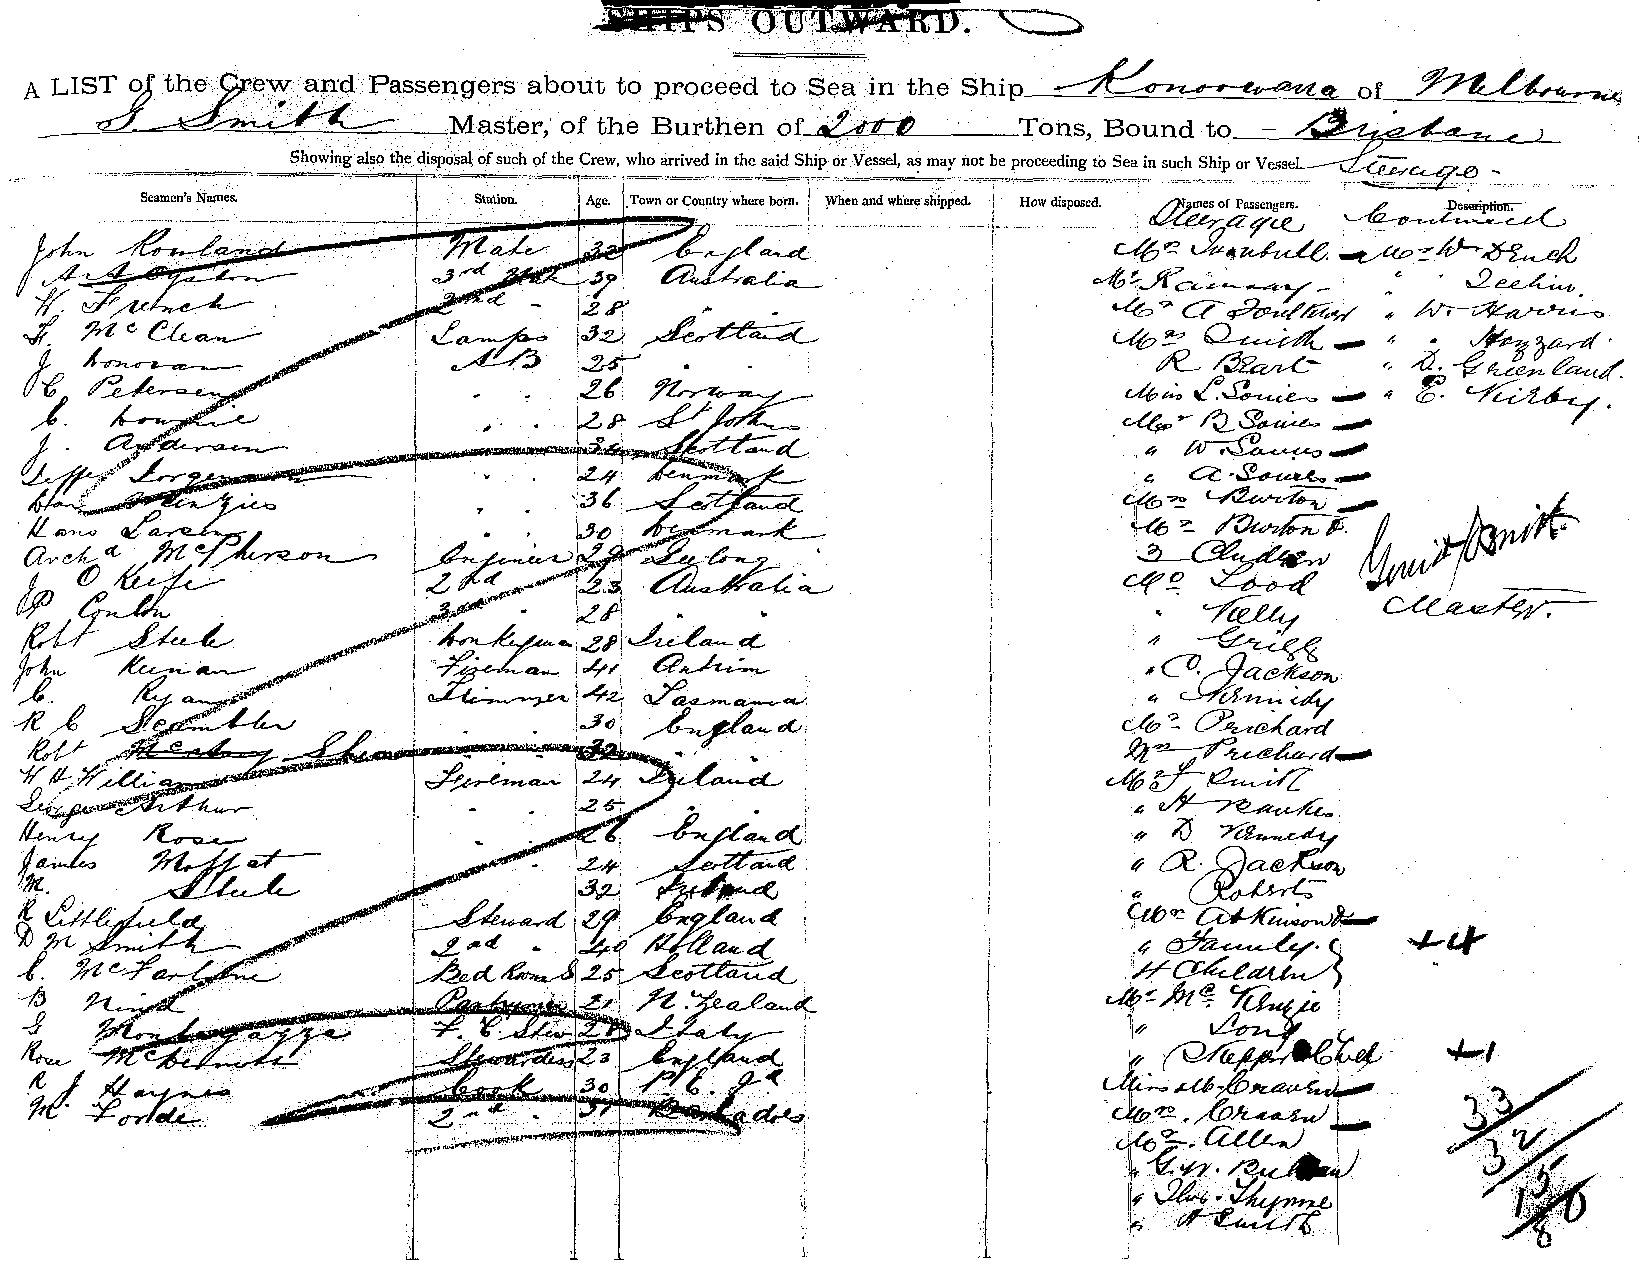 SHIPS OUTWARD.
A LIST of the Crew and Passengers about to proceed to Sea in the Ship Konoowarra of Melbourne
S Smith Master, of the Burthen of 2000 Tons, Bound to Brisbane
Showing also the disposal of such of the Crew, who arrived in the said Ship or Vessel, as may not be proceeding to Sea in such Ship or Vessel. Steerage
Seamen's Names. Station. Age. Town or Country where born. When and where shipped. How disposed. Names of Passengers. Description.
Steerage Continued
John Rowland Mate England Mrs Turnbull Mr W. Dench
3rd Mate 39 Australia Mr Ramsay
W. French 2nd 28 " Mr A W. Harris
H. McClean Lamps 32 Scotland Mrs Smith " " Hazzard
J Donovan AB 25 " R Beart " D. Greenland
C Petersen " " 26 Norway Miss L. Somes " E. Kirby.
C. Downie " " 28 St Johns Mas B Somes
J. Andersen 34 Scotland " W. Somes
Jeppe Jorgensen " " 24 Denmark " A. Somes
Menzies " " 36 Scotland Mrs Burton
Hans Larsen 30 Denmark Mr Burton &
Archd McPherson Engineer 29 Geelong 3 Children
J O Keife 2nd 23 Australia Mr Lood
P Conlon 3rd " 28 " " Kelly
Master.
Robt Steele Donkeyman 28 Ireland " Grigg
John Keenan Fireman 41 Antrim " C. Jackson
C. Ryan Trimmer 42 Tasmania " Kennedy
R C Scambler 30 England Mr Prichard
Robt Shea 32 " Mrs Prichard
W H William Fireman 24 Ireland Mr J Smith
George Arthur " " 25 " " H Hawkes
Henry Rose " " 26 England " D Kennedy
James Moffat " 24 Scotland " R. Jackson
M. Steele 32 Ireland " Roberts
R Littlefield Steward 29 England Mrs Atkinson &
D M Smith 2nd " 40 Holland " Family. +4
C. McFarlane Bed Room S 25 Scotland 4 Children
B Nind Pantryman 21 N. Zealand Mr McKenzie
G F. C. Stew 28 Italy " Long
Rose McDermott Stewardess 23 England " & Child +1
R J Haynes Cook 30 P. E. Id Miss M. Craven
M. Forde 2nd " 31 Barbados Mrs. Craven
Mr. Allen
" G. W.
" Thos. Thynne
" H Smith
33
32
15
8